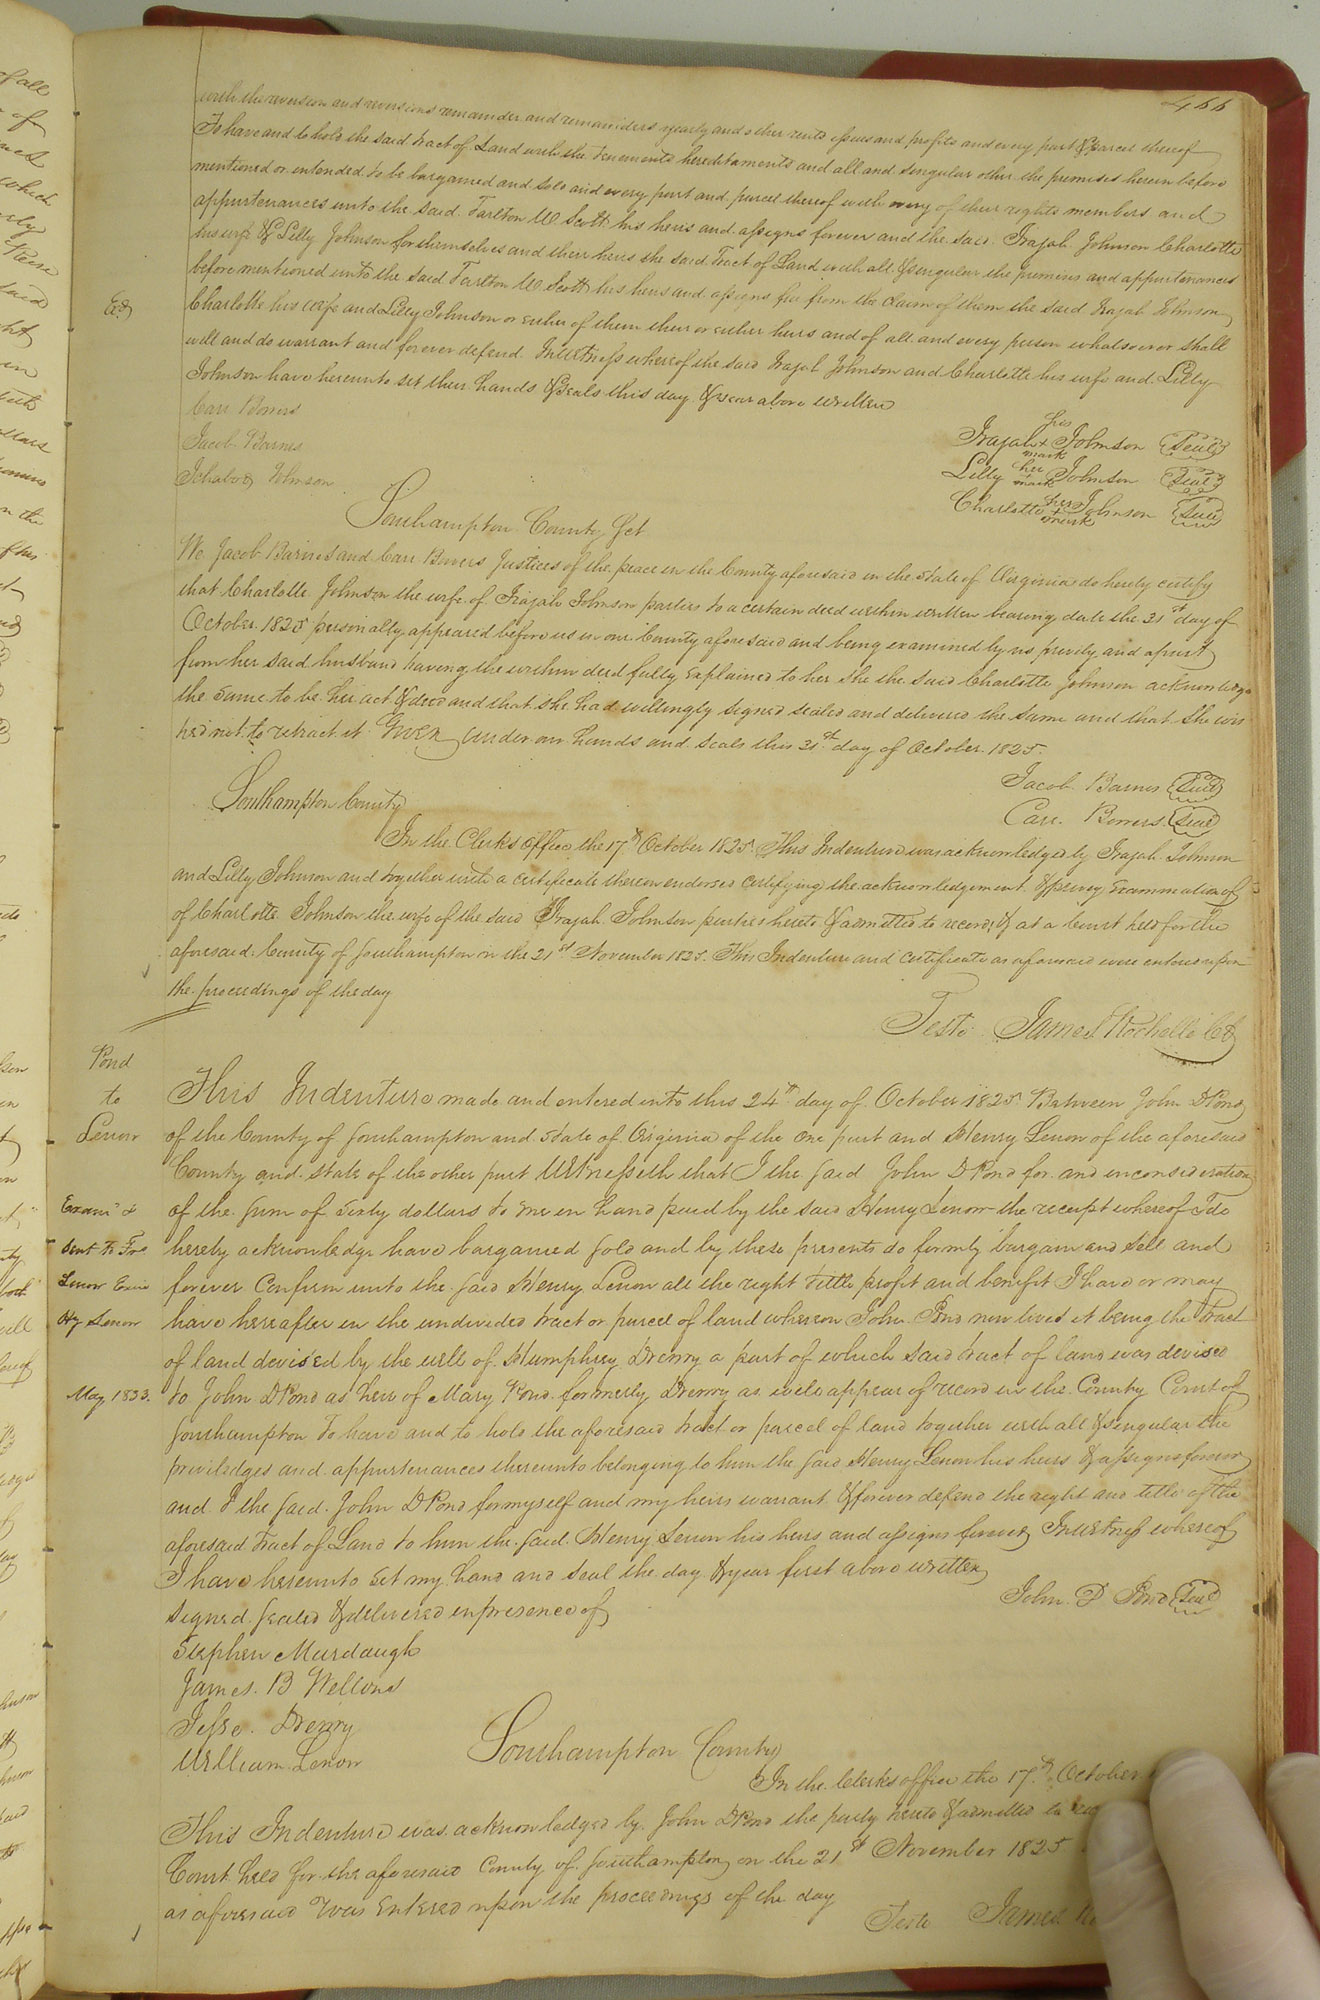 466
with the reversion and reversions remainder and remainders yearly and other rents issues and profits and every part & parcel thereof
To have and to hold the said tract of Land with the tenements hereditaments and all and singular other the premises herein before
mentioned or intended to be bargained and sold and every part and parcel thereof with every of their rights members and
appurtenances unto the said Tarlton W. Scott his heirs and assigns forever and the said Irajah Johnson Charlotte
his wife & Lilly Johnson for themselves and their heirs the said Tract of Land with all & singular the premises and appurtenances
before mentioned unto the said Tarlton W Scott his heirs and assigns free from the claim of them the said Irajah Johnson
Charlotte his wife and Lilly Johnson or either of them their or either heirs and of all and every person whatsoever shall
will and do warrant and forever defend. In witness whereof the said Irajah Johnson and Charlotte his wife and Lilly
Johnson have hereunto set their hands & seals this day & year above written
Carr Bowers
Jacob Barnes
Ichabod Johnson
his
Irajah + Johnson Seal
mark
her
Lilly + Johnson Seal
mark
her
Charlotte + Johnson Seal
mark
Southampton County Sct
We Jacob Barnes and Carr Bowers Justices of the peace in the County aforesaid in the State of Virginia do hereby certify
that Charlotte Johnson the wife of Irajah Johnson parties to a certain deed within written bearing date the 31st day of
October 1825 personally appeared before us in our County aforesaid and being examined by us privily and apart
from her said husband having the within deed fully explained to her she the said Charlotte Johnson acknowledge
the same to be her act & deed and that she had willingly signed sealed and delivered the same and that she wis
hed not to retract it Given under our hands and seals this 31st day of October 1825.
Jacob Barnes Seal
Carr Bowers Seal
Southampton County
In the Clerks Office the 17th October 1825. This Indenture was acknowledged by Irajah Johnson
and Lilly Johnson and together with a certificate thereon endorsed certifying the acknowledgement & privy Examination of
of Charlotte Johnson the wife of the said Irajah Johnson parties hereto & admitted to record; & at a Court held for the
aforesaid County of Southampton on the 21st November 1825. This Indenture and certificate as aforesaid were entered upon
the proceedings of the day
Teste James Rochelle
Pond
to
Lenow
This Indenture made and entered into this 24th day of October 1825 Between John D Pond
of the County of Southampton and State of Virginia of the one part and Henry Lenow of the aforesaid
County and state of the other part Witnesseth that I the said John D Pond for and in consideration
of the sum of Sixty dollars to me in hand paid by the said Henry Lenow the receipt whereof I do
hereby acknowledge have bargained sold and by these presents do firmly bargain and sell and
forever Confirm unto the said Henry Lenow all the right tittle profit and benifit I have or may
have hereafter in the undivided tract or parcel of land whereon John Pond now lives it being the Tract
of land devised by the will of Humphrey Drewry a part of which said tract of land was devised
to John D Pond as heir of Mary Pond formerly Drewry as will appear of record in the County Court of
Southampton To have and to hold the aforesaid tract or parcel of land together with all & singular the
priviledges and appurtenances thereunto belonging to him the said Henry Lenow his heirs & assigns forever
and I the said John D Pond for myself and my heirs warrant & forever defend the right and title of the
aforesaid tract of Land to him the said Henry Lenow his heirs and assigns forever In witness whereof
I have hereunto set my hand and seal the day & year first above written
John D Pond Seal
Exam.d &
sent to
Lenow
Hy Lenow
May 1833.
signed sealed & delivered in presence of
Stephen Murdaugh
James B Wellons
Jesse Drewry
William Lenow
Southampton County
In the Clerks office the 17th October
This Indenture was acknowledged by John D Pond the party hereto & admitted to
Court held for the aforesaid County of Southampton on the 21st November 1825
as aforesaid was Entered upon the proceedings of the day
Teste James